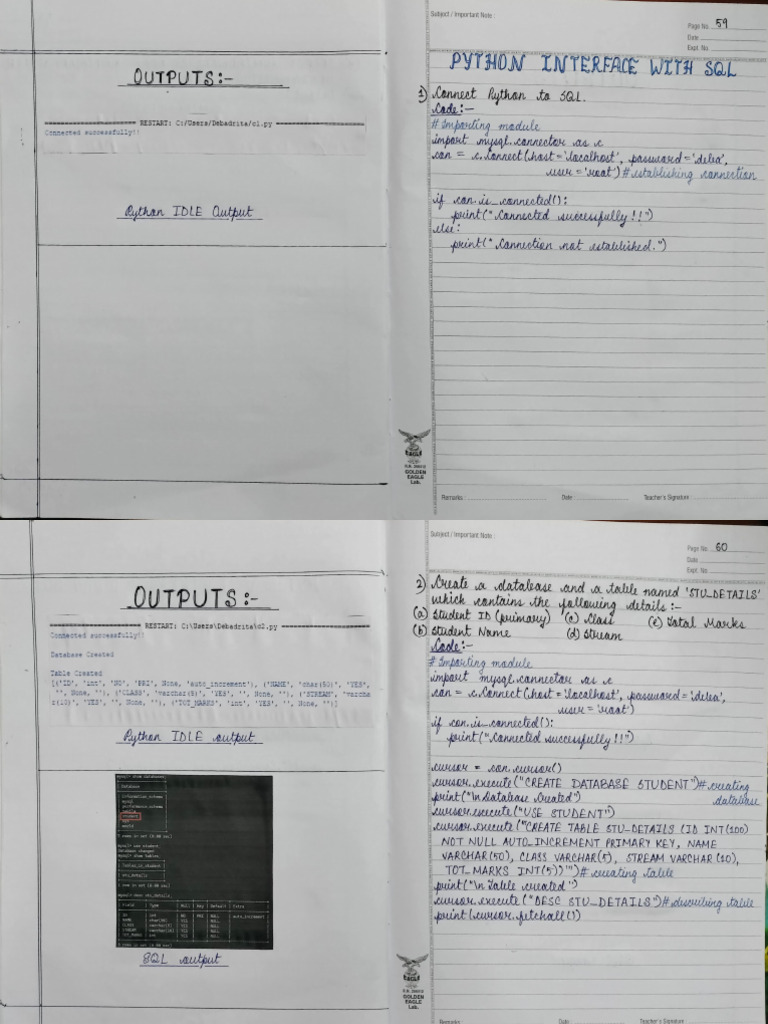 OUTPUTS:-
RESTART: C:/Users/Debadrita/c1.py
Connected successfully!!
Python IDLE Output
Subject / Important Note :
Page No. 59
Date
Expt. No.
PYTHON INTERFACE WITH SQL
1) Connect Python to SQL.
Code:-
# Importing module
import mysql.connector as c
con = c.connect(host='localhost', password='delea',
user='root') # establishing connection
if con.is_connected():
print("Connected successfully!!")
else:
print("Connection not established.")
EAGLE
GOLDEN
EAGLE
Lab.
Remarks :
Date :
Teacher's Signature :
OUTPUTS:-
RESTART: C:\Users\Debadrita\c2.py
Connected successfully!!
Database Created
Table Created
[('ID', 'int', 'NO', 'PRI', None, 'auto_increment'), ('NAME', 'char(50)', 'YES',
'', None, ''), ('CLASS', 'varchar(5)', 'YES', '', None, ''), ('STREAM', 'varcha
r(10)', 'YES', '', None, ''), ('TOT_MARKS', 'int', 'YES', '', None, '')]
Python IDLE output
mysql> show databases;
Database
information_schema
mysql
performance_schema
student
world
mysql> use student
Database changed
mysql> show tables;
stu_details
Field Type NULL Key Default Extra
SQL output
Subject / Important Note :
Page No. 60
Date
Expt. No.
2) Create a database and a table named 'STU_DETAILS'
which contains the following details :-
(a) Student ID (primary) (c) Class (e) Total Marks
(b) Student Name (d) Stream
Code:-
# Importing module
import mysql.connector as c
con = c.connect(host='localhost', password='delea',
user='root')
if con.is_connected():
print("Connected successfully!!")
cursor = con.cursor()
cursor.execute("CREATE DATABASE STUDENT") # creating
print("\n Database Created") database
cursor.execute("USE STUDENT")
cursor.execute('''CREATE TABLE STU_DETAILS (ID INT(100)
NOT NULL AUTO_INCREMENT PRIMARY KEY, NAME
VARCHAR(50), CLASS VARCHAR(5), STREAM VARCHAR(10),
TOT_MARKS INT(5))''') # creating table
print("\n Table created")
cursor.execute("DESC STU_DETAILS") # describing table
print(cursor.fetchall())
EAGLE
GOLDEN
EAGLE
Lab.
Remarks :
Date :
Teacher's Signature :